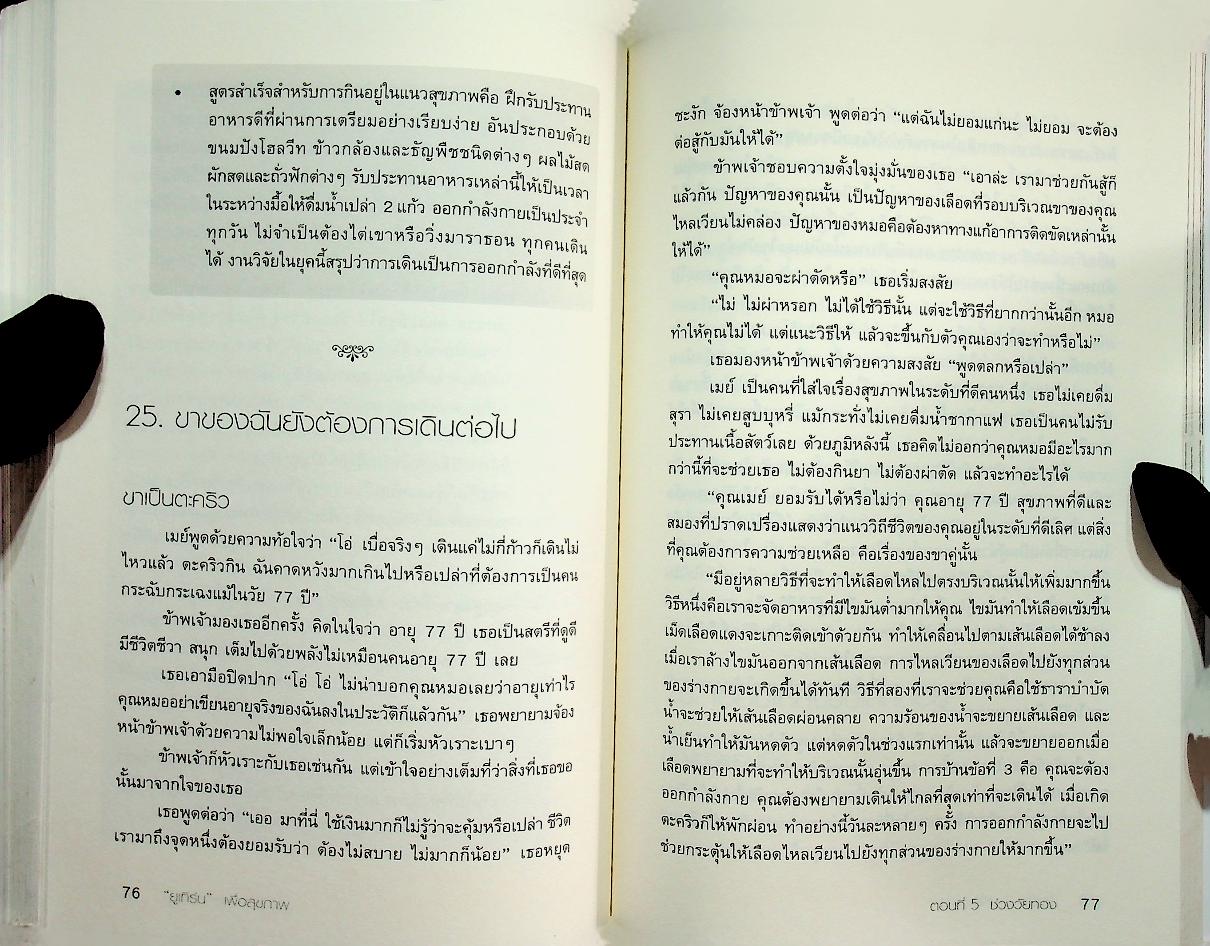 • สูตรสำเร็จสำหรับการกินอยู่ในแนวสุขภาพคือ ฝึกรับประทาน
อาหารดีที่ผ่านการเตรียมอย่างเรียบง่าย อันประกอบด้วย
ขนมปังโฮลวีท ข้าวกล้องและธัญพืชชนิดต่างๆ ผลไม้สด
ผักสดและถั่วฟักต่างๆ รับประทานอาหารเหล่านี้ให้เป็นเวลา
ในระหว่างมื้อให้ดื่มน้ำเปล่า 2 แก้ว ออกกำลังกายเป็นประจำ
ทุกวัน ไม่จำเป็นต้องไต่เขาหรือวิ่งมาราธอน ทุกคนเดิน
ได้ งานวิจัยในยุคนี้สรุปว่าการเดินเป็นการออกกำลังที่ดีที่สุด
25. ขาของฉันยังต้องการเดินต่อไป
ขาเป็นตะคริว
เมย์พูดด้วยความท้อใจว่า “โอ่ เบื่อจริงๆ เดินแค่ไม่กี่ก้าวก็เดินไม่
ไหวแล้ว ตะคริวกิน ฉันคาดหวังมากเกินไปหรือเปล่าที่ต้องการเป็นคน
กระฉับกระเฉงแม้ในวัย 77 ปี”
ข้าพเจ้ามองเธออีกครั้ง คิดในใจว่า อายุ 77 ปี เธอเป็นสตรีที่ดูดี
มีชีวิตชีวา สนุก เต็มไปด้วยพลังไม่เหมือนคนอายุ 77 ปี เลย
เธอเอามือปิดปาก “โอ่ โอ่ ไม่น่าบอกคุณหมอเลยว่าอายุเท่าไร
คุณหมออย่าเขียนอายุจริงของฉันลงในประวัติก็แล้วกัน” เธอพยายามจ้อง
หน้าข้าพเจ้าด้วยความไม่พอใจเล็กน้อย แต่ก็เริ่มหัวเราะเบาๆ
ข้าพเจ้าก็หัวเราะกับเธอเช่นกัน แต่เข้าใจอย่างเต็มที่ว่าสิ่งที่เธอขอ
นั้นมาจากใจของเธอ
เธอพูดต่อว่า “เออ มาที่นี่ ใช้เงินมากก็ไม่รู้ว่าจะคุ้มหรือเปล่า ชีวิต
เรามาถึงจุดหนึ่งต้องยอมรับว่า ต้องไม่สบาย ไม่มากก็น้อย” เธอหยุด
76 “ยูเทิร์น” เพื่อสุขภาพ
ชะงัก จ้องหน้าข้าพเจ้า พูดต่อว่า “แต่ฉันไม่ยอมแก่นะ ไม่ยอม จะต้อง
ต่อสู้กับมันให้ได้”
ข้าพเจ้าชอบความตั้งใจมุ่งมั่นของเธอ “เอาล่ะ เรามาช่วยกันสู้ก็
แล้วกัน ปัญหาของคุณนั้น เป็นปัญหาของเลือดที่รอบบริเวณขาของคุณ
ไหลเวียนไม่คล่อง ปัญหาของหมอคือต้องหาทางแก้อาการติดขัดเหล่านั้น
ให้ได้”
“คุณหมอจะผ่าตัดหรือ” เธอเริ่มสงสัย
“ไม่ ไม่ผ่าหรอก ไม่ได้ใช้วิธีนั้น แต่จะใช้วิธีที่ยากกว่านั้นอีก หมอ
ทำให้คุณไม่ได้ แต่แนะวิธีให้ แล้วจะขึ้นกับตัวคุณเองว่าจะทำหรือไม่”
เธอมองหน้าข้าพเจ้าด้วยความสงสัย “พูดตลกหรือเปล่า”
เมย์ เป็นคนที่ใส่ใจเรื่องสุขภาพในระดับที่ดีคนหนึ่ง เธอไม่เคยดื่ม
สุรา ไม่เคยสูบบุหรี่ แม้กระทั่งไม่เคยดื่มน้ำชากาแฟ เธอเป็นคนไม่รับ
ประทานเนื้อสัตว์เลย ด้วยภูมิหลังนี้ เธอคิดไม่ออกว่าคุณหมอมีอะไรมาก
กว่านี้ที่จะช่วยเธอ ไม่ต้องกินยา ไม่ต้องผ่าตัด แล้วจะทำอะไรได้
“คุณเมย์ ยอมรับได้หรือไม่ว่า คุณอายุ 77 ปี สุขภาพที่ดีและ
สมองที่ปราดเปรื่องแสดงว่าแนววิถีชีวิตของคุณอยู่ในระดับที่ดีเลิศ แต่สิ่ง
ที่คุณต้องการความช่วยเหลือ คือเรื่องของขาคู่นั้น
“มีอยู่หลายวิธีที่จะทำให้เลือดไหลไปตรงบริเวณนั้นให้เพิ่มมากขึ้น
วิธีหนึ่งคือเราจะจัดอาหารที่มีไขมันต่ำมากให้คุณ ไขมันทำให้เลือดเข้มขึ้น
เม็ดเลือดแดงจะเกาะติดเข้าด้วยกัน ทำให้เคลื่อนไปตามเส้นเลือดได้ช้าลง
เมื่อเราล้างไขมันออกจากเส้นเลือด การไหลเวียนของเลือดไปยังทุกส่วน
ของร่างกายจะเกิดขึ้นได้ทันที วิธีที่สองที่เราจะช่วยคุณคือใช้ธาราบำบัด
น้ำจะช่วยให้เส้นเลือดผ่อนคลาย ความร้อนของน้ำจะขยายเส้นเลือด และ
น้ำเย็นทำให้มันหดตัว แต่หดตัวในช่วงแรกเท่านั้น แล้วจะขยายออกเมื่อ
เลือดพยายามที่จะทำให้บริเวณนั้นอุ่นขึ้น การบ้านข้อที่ 3 คือ คุณจะต้อง
ออกกำลังกาย คุณต้องพยายามเดินให้ไกลที่สุดเท่าที่จะเดินได้ เมื่อเกิด
ตะคริวก็ให้พักผ่อน ทำอย่างนี้วันละหลายๆ ครั้ง การออกกำลังกายจะไป
ช่วยกระตุ้นให้เลือดไหลเวียนไปยังทุกส่วนของร่างกายให้มากขึ้น”
ตอนที่ 5 ช่วงวัยทอง 77